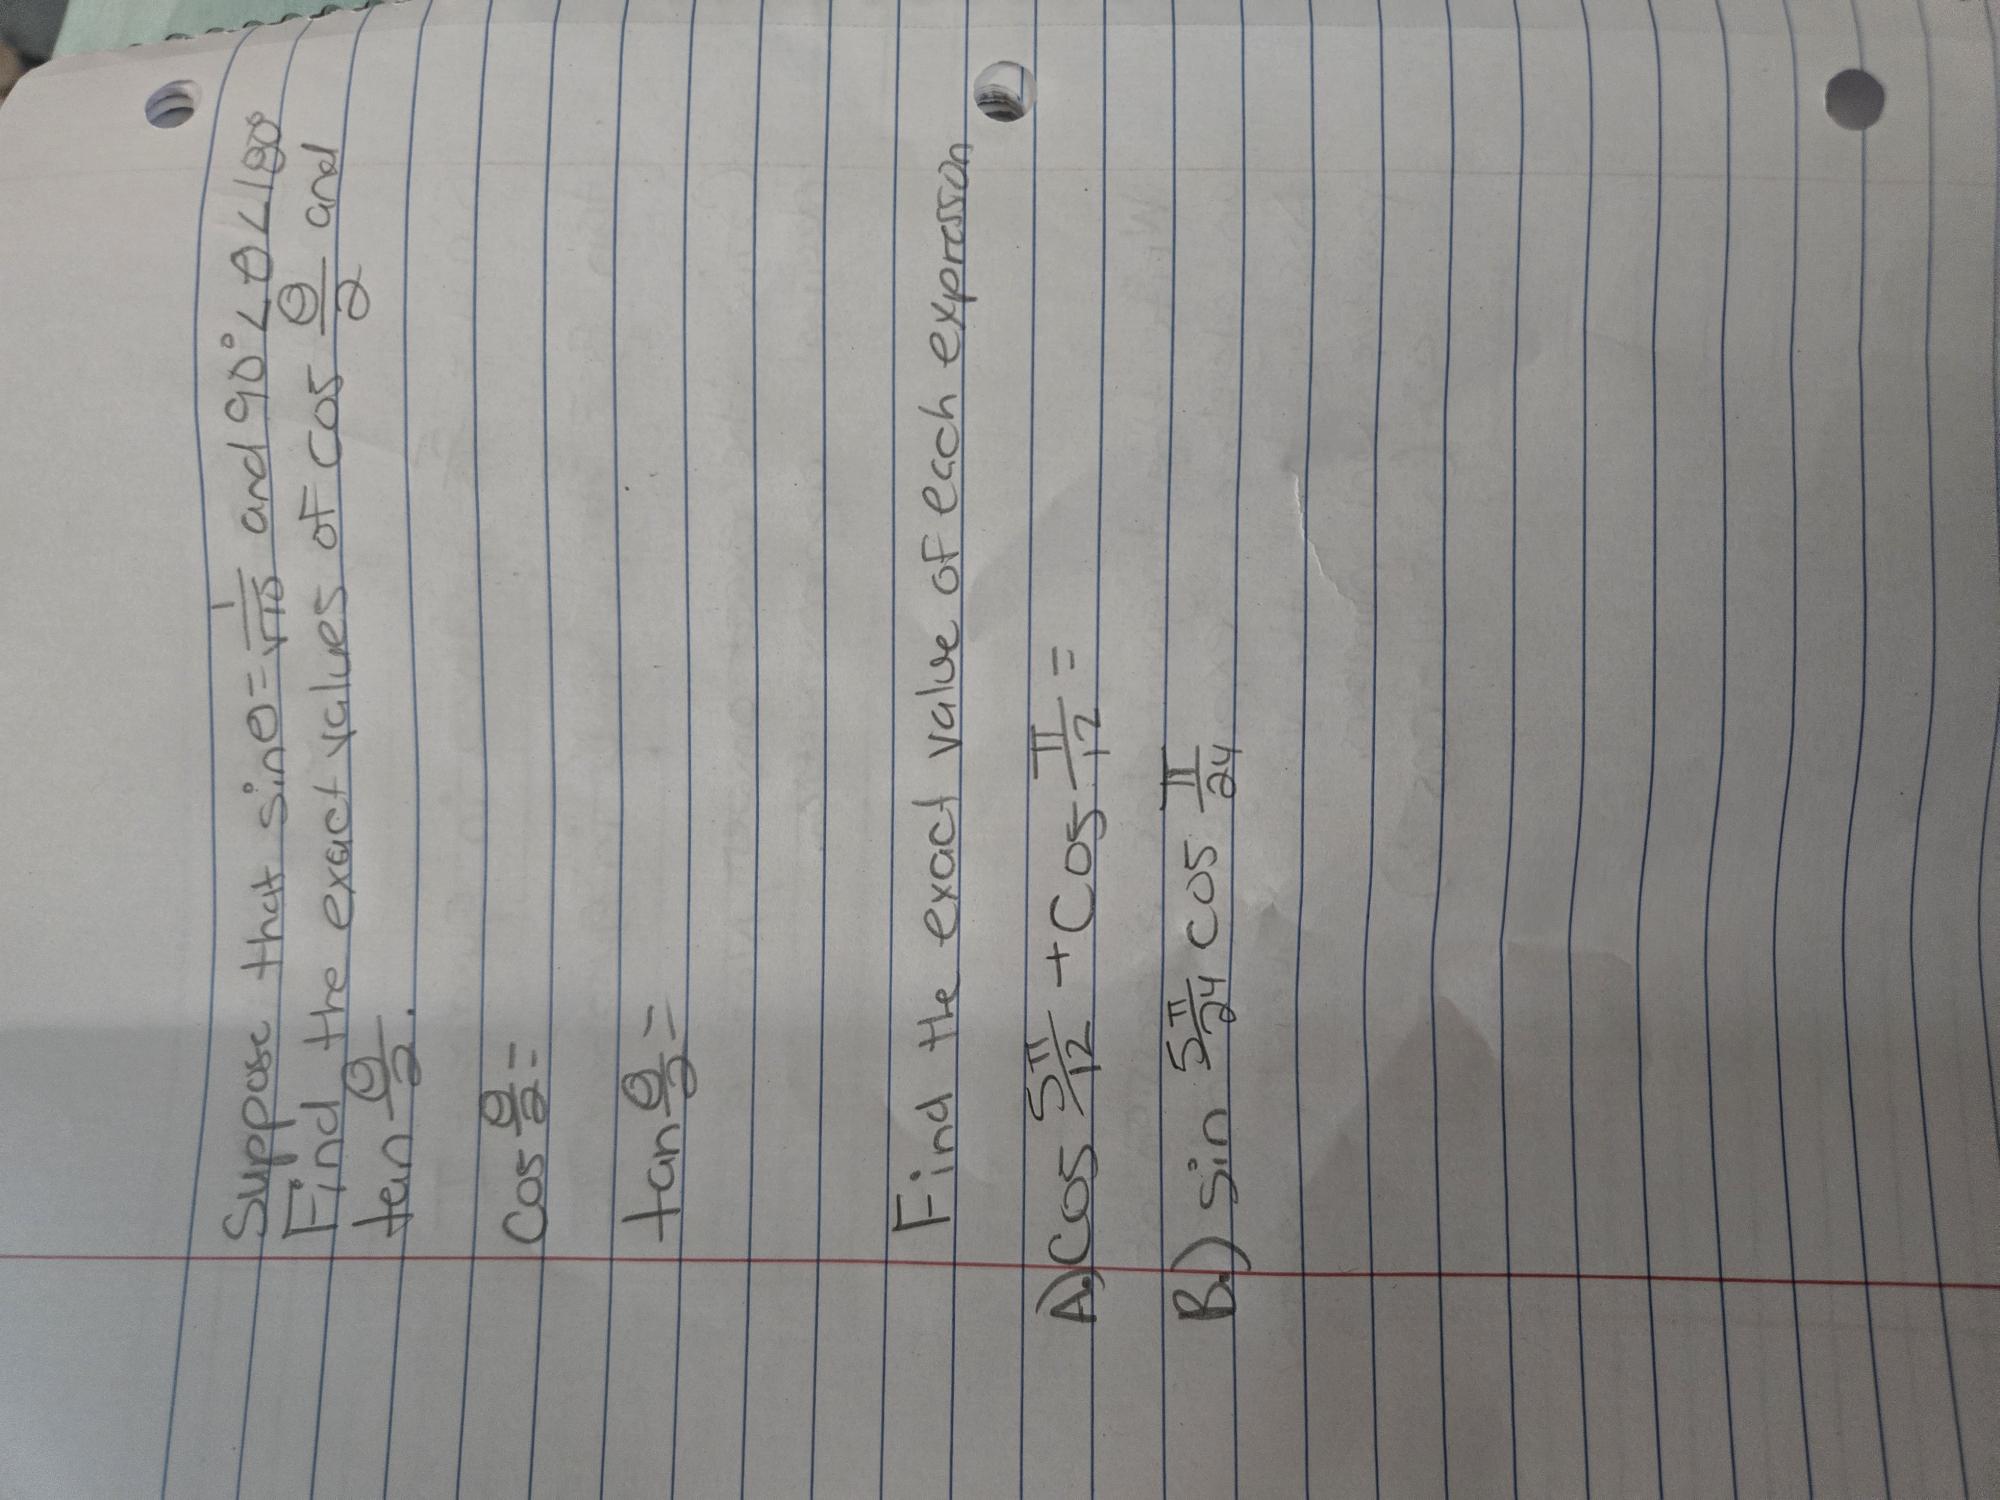 Suppose that sinθ = 1/√10 and 90° < θ < 180°
Find the exact values of cos θ/2 and
tan θ/2.
cos θ/2 =
tan θ/2 =
Find the exact value of each expression
A.) cos 5π/12 + cos π/12 =
B.) sin 5π/24 cos π/24